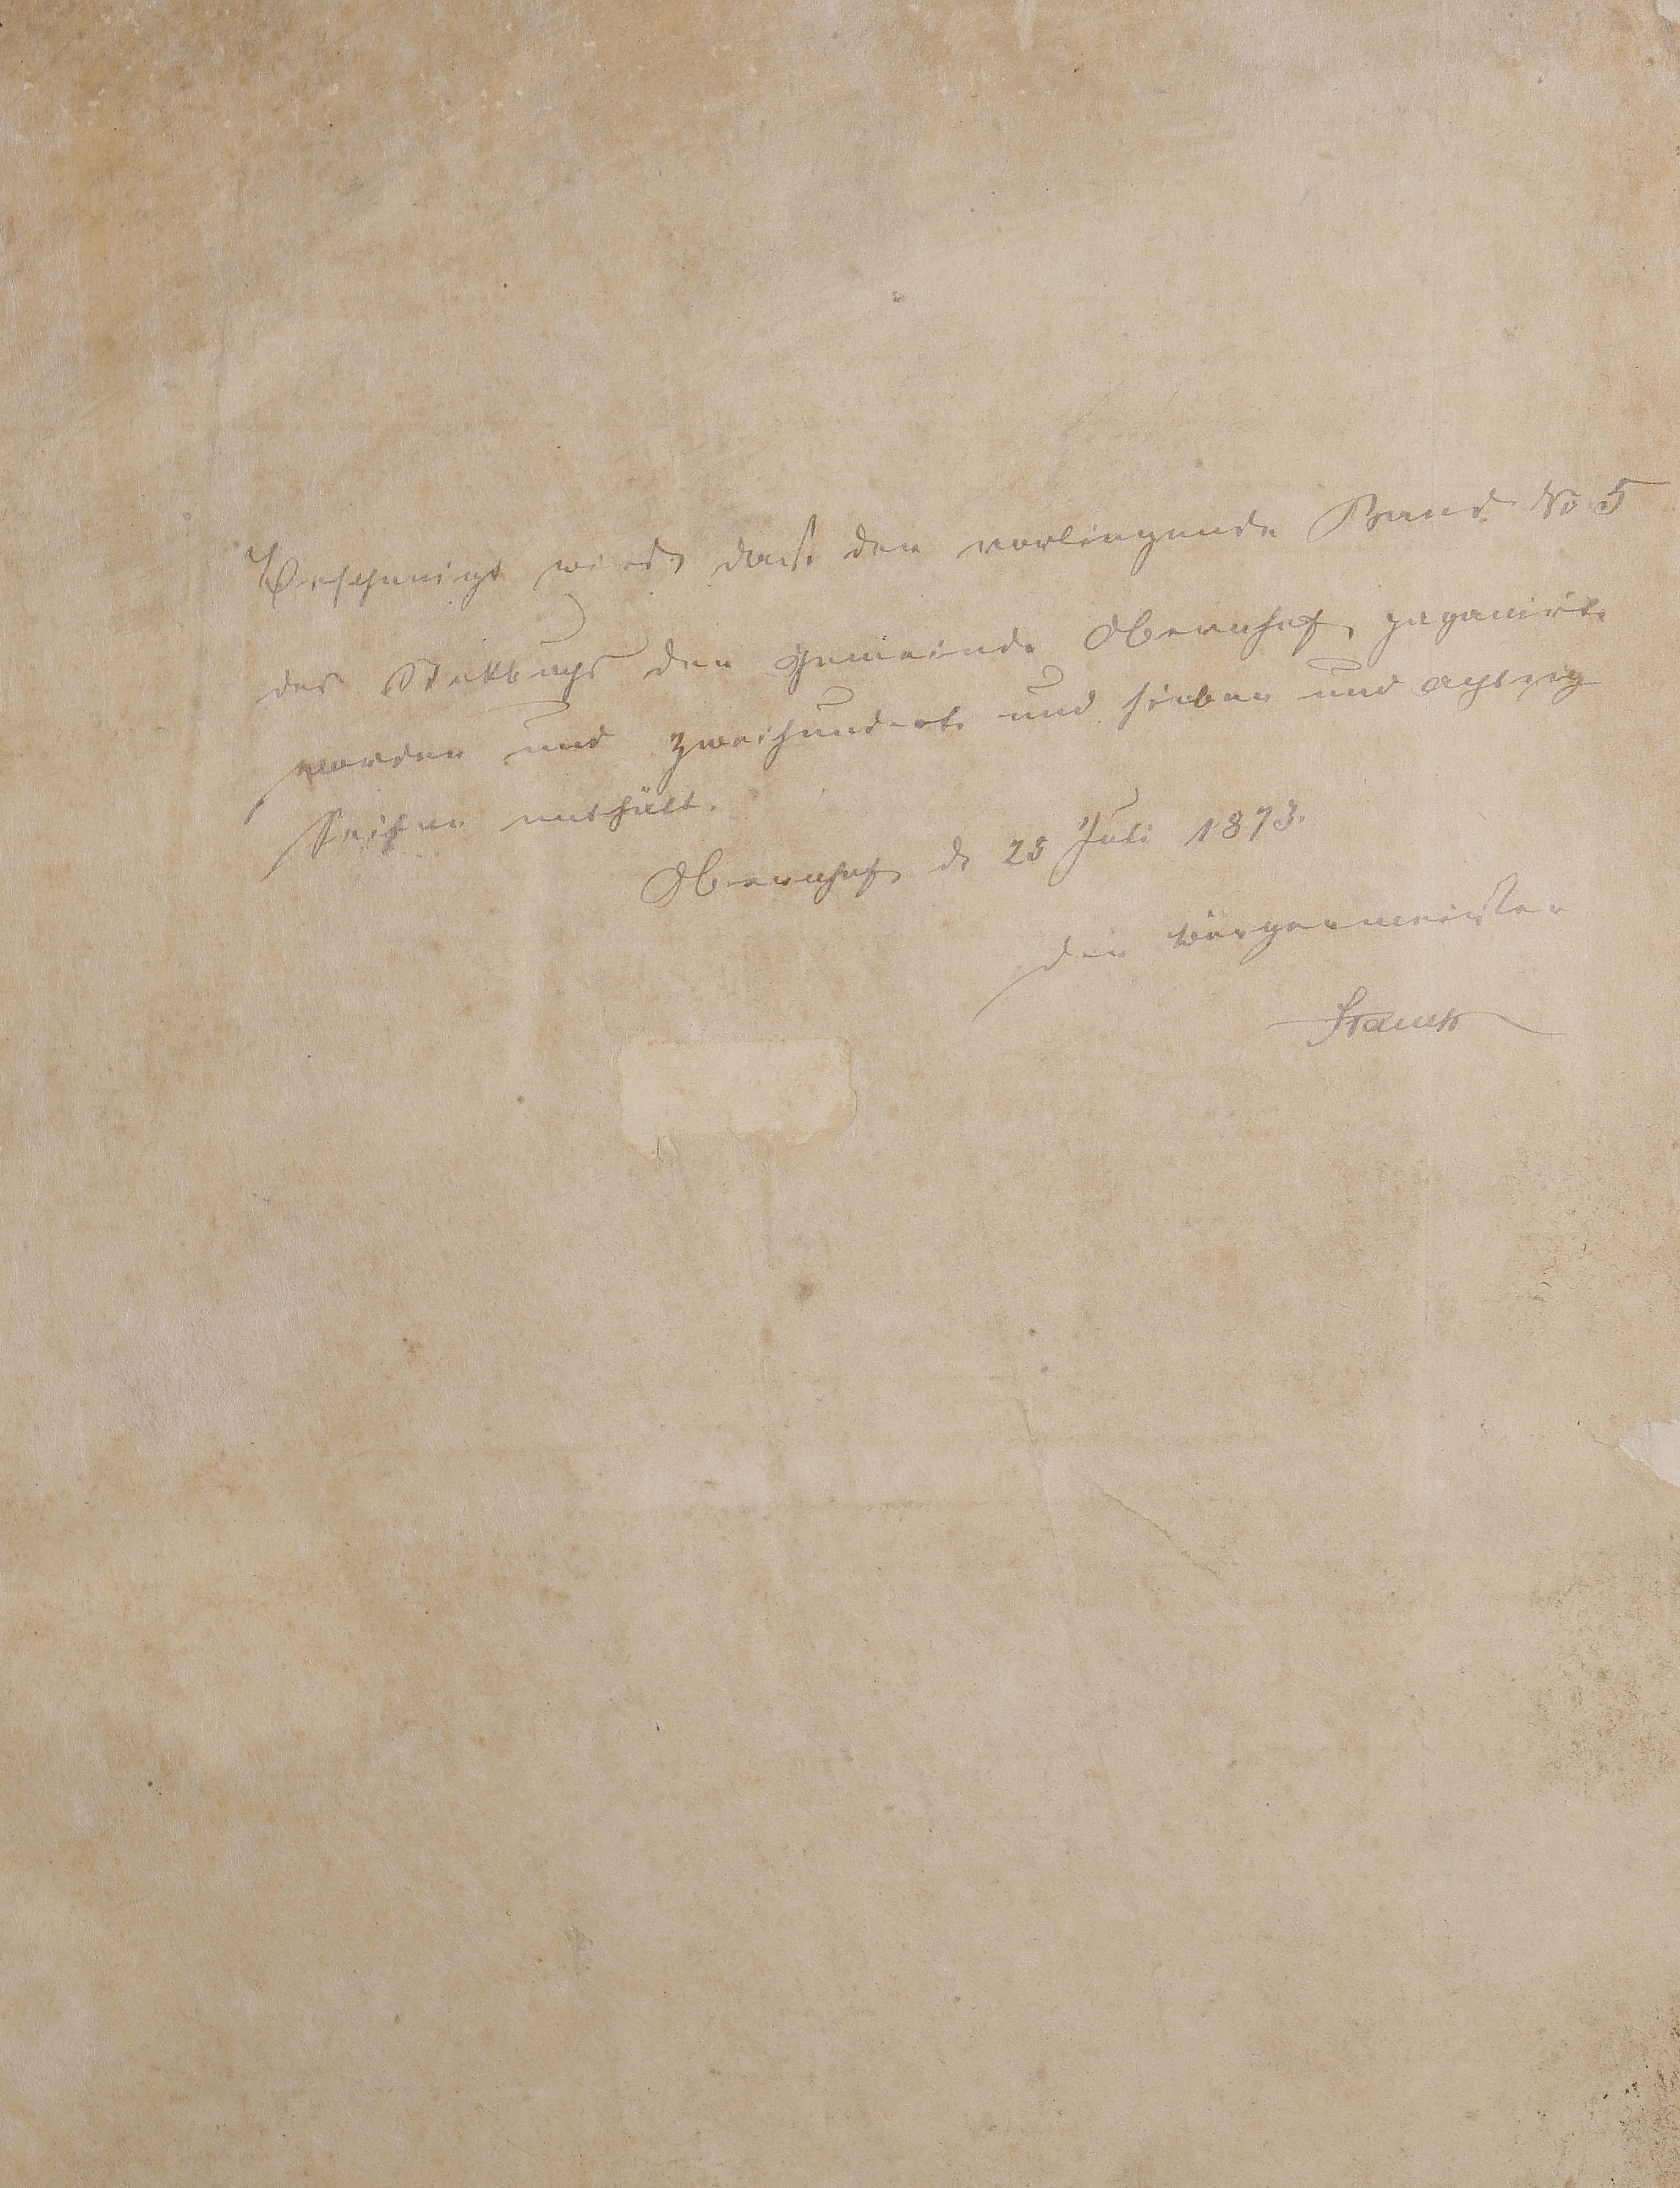 Bescheinigt wird, daß der vorliegende Band No 5
des Stockbuchs der Gemeinde Obernhof, paganirt
worden und zweihundert und sieben und achtzig
Seiten enthält.
Obernhof, d. 25 Juli 1873.
der Bürgermeister